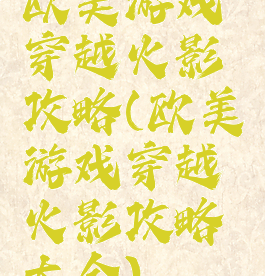 欧美游戏
穿越火影
攻略(欧美
游戏穿越
火影攻略
大全)